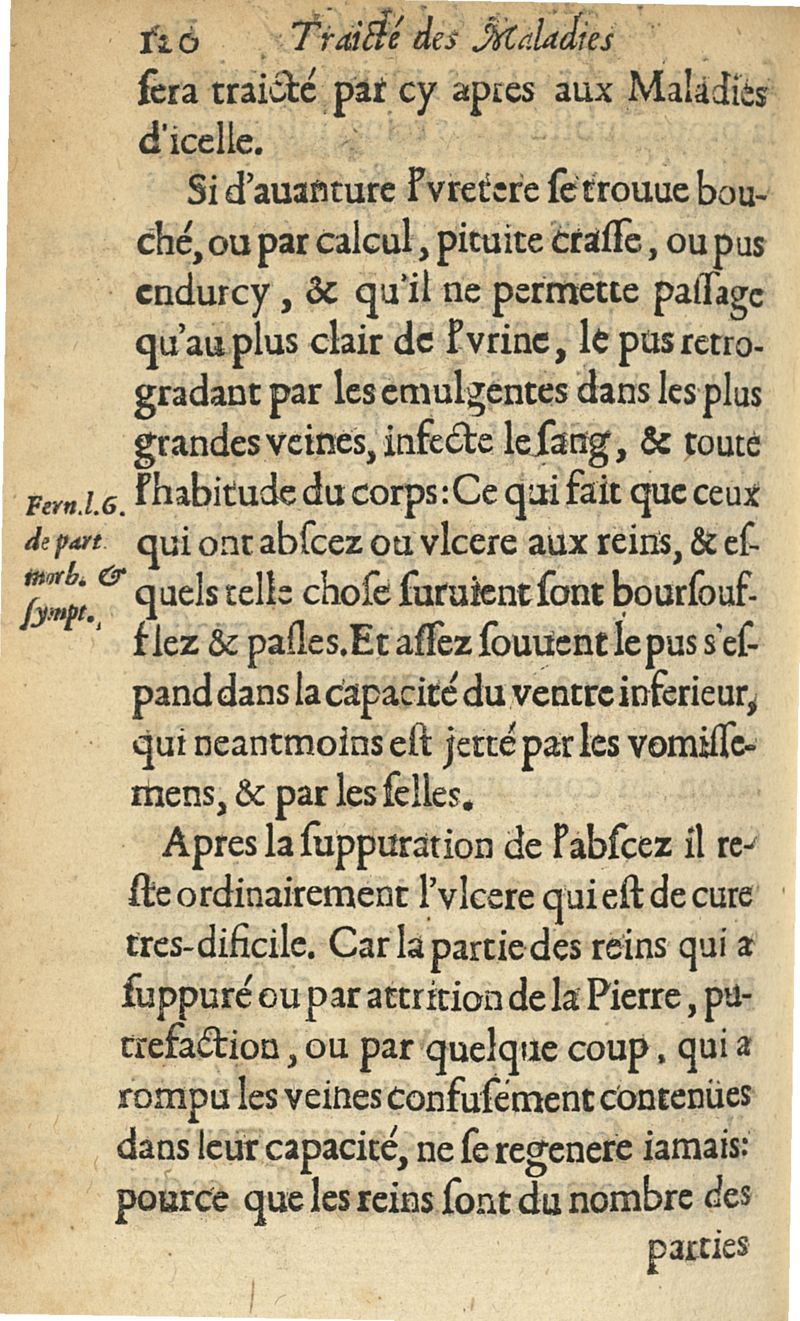 120 Traicté des Maladies
ſera traicté par cy apres aux Maladies
d'icelle.
Si d'auanture l'vretere ſe trouue bou-
ché, ou par calcul, pituite craſſe, ou pus
endurcy, & qu'il ne permette paſſage
qu'au plus clair de l'vrine, le pus retro-
gradant par les emulgentes dans les plus
grandes veines, infecte le ſang, & toute
l'habitude du corps: Ce qui fait que ceux
qui ont abſcez ou vlcere aux reins, & eſ-
quels telle choſe ſuruient ſont bourſouf-
flez & paſles. Et aſſez ſouuent le pus s'eſ-
pand dans la capacité du ventre inferieur,
qui neantmoins eſt jetté par les vomiſſe-
mens, & par les ſelles.
Fern. l. 6.
de part.
morb. &
ſympt.
Apres la ſuppuration de l'abſcez il re-
ſte ordinairement l'vlcere qui eſt de cure
tres-dificile. Car la partie des reins qui a
ſuppuré ou par attrition de la Pierre, pu-
trefaction, ou par quelque coup, qui a
rompu les veines confuſément contenües
dans leur capacité, ne ſe regenere iamais:
pource que les reins ſont du nombre des
parties